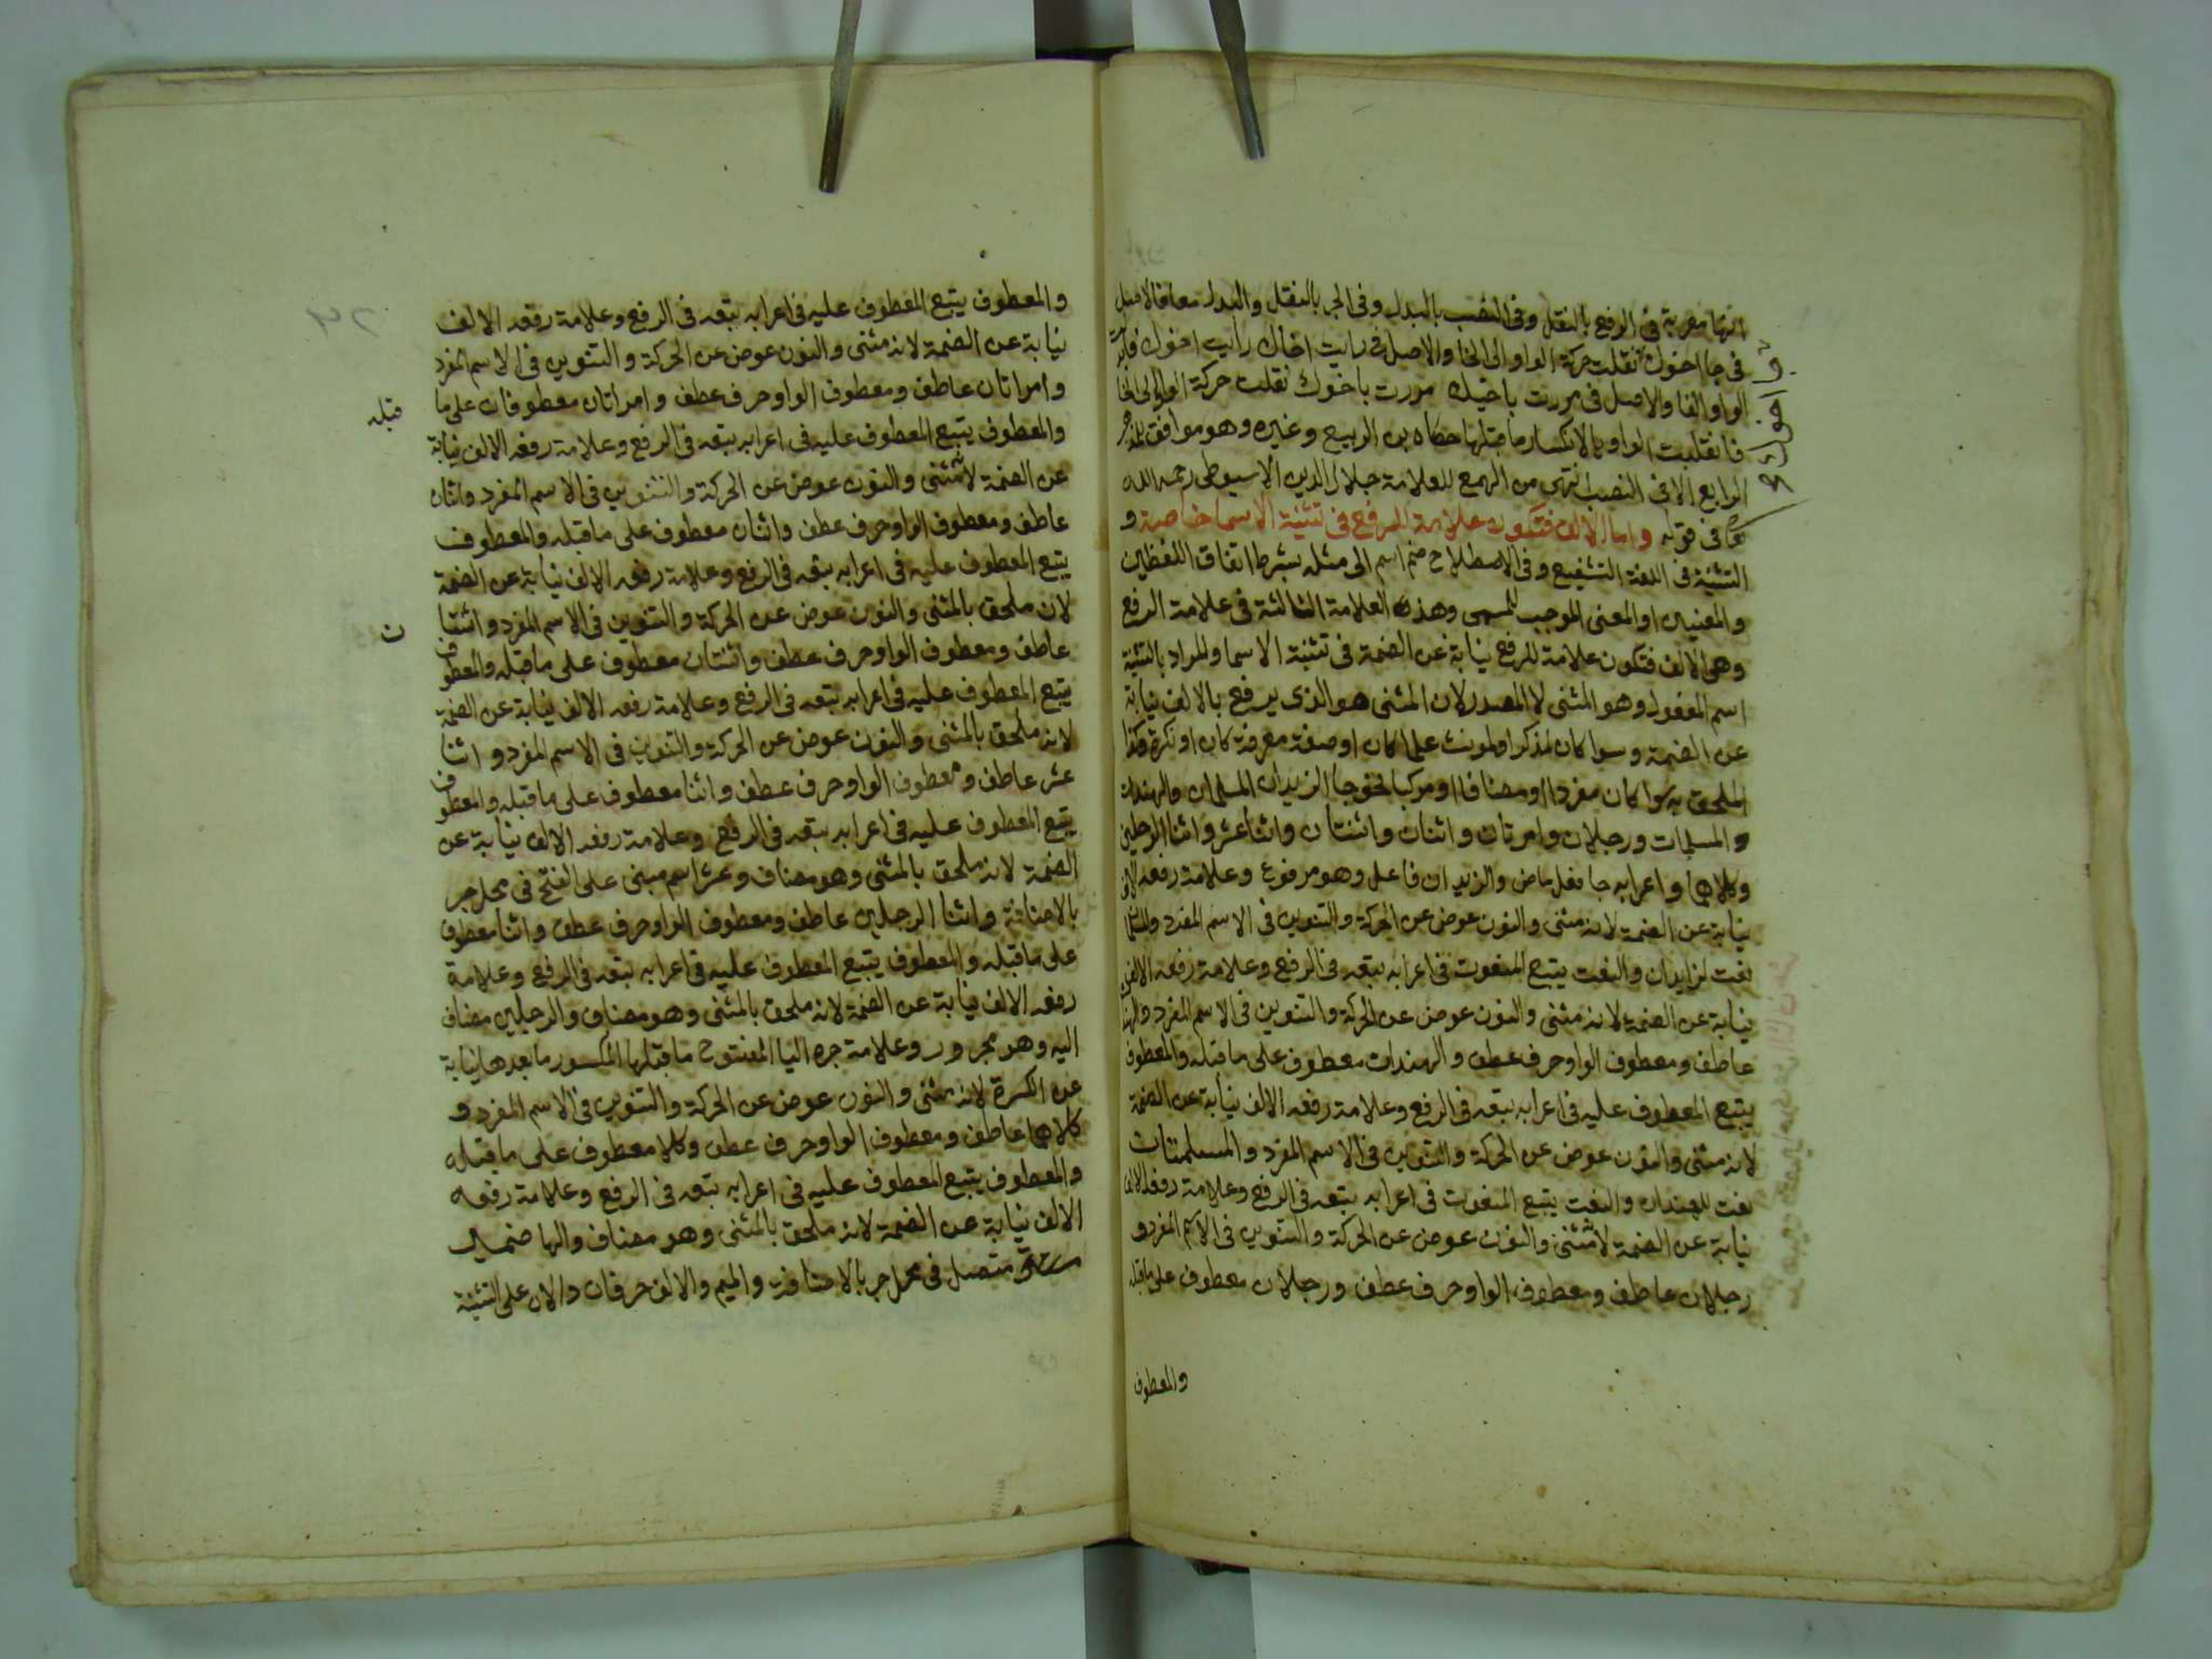 انها معربة فى الرفع بالنقل وفى النصب بالبدل وفى الجر بالنقل والبدل معا فالاصل
فى جا اخوك نقلت حركة الواو الى الخا والاصل فى رايت اخاك رايت اخوك
الواو الفا والاصل فى مررت باخيك مررت باخوك نقلت حركة الواو الى الخا
فانقلبت الواو يا لانكسار ما قبلها حكاه بن الربيع وغيره وهو موافق
الرابع الا فى النصب انتهى من الهمع للعلامة جلال الدين الاسيوطى رحمه الله
فى قوله واما الالف فتكون علامة للرفع فى تثنية الاسما خاصة و
التثنية فى اللغة التشفيع وفى الاصطلاح ضم اسم الى مثله بشرط اتفاق اللفظين
والمعنيين او المعنى الموجب للتسمى وهذه العلامة الثالثة فى علامة الرفع
وهى الالف فتكون علامة للرفع نيابة عن الضمة فى تثنية الاسما والمراد بالتثنية
اسم المفعول وهو المثنى لا المصدر لان المثنى هو الذى يرفع بالالف نيابة
عن الضمة وسوا كان لمذكر او لمونث علما كان او صفة معرفة كان او نكرة وكذا
الملحق به سوا كان مفردا او مضافا او مركبا نحو جا الزيدان المسلمان والهندات
والمسلمات ورجلان وامرتان واثنان واثنتان واثنا عشر واثنا الرجلين
وكلاهما واعرابه جا فعل ماض والزيدان فاعل وهو مرفوع وعلامة رفعه الالف
نيابة عن الضمة لانه مثنى والنون عوض عن الحركة والتنوين فى الاسم المفرد
نعت لزايدان والنعت يتبع المنعوت فى اعرابه تبعه فى الرفع وعلامة رفعه الالف
نيابة عن الضمة لانه مثنى والنون عوض عن الحركة والتنوين فى الاسم المفرد
عاطف ومعطوف الواو حرف عطف والهندات معطوف على ما قبله والمعطوف
يتبع المعطوف عليه فى اعرابه تبعه فى الرفع وعلامة رفعه الالف نيابة عن الضمة
لانه مثنى والنون عوض عن الحركة والتنوين فى الاسم المفرد والمسلمتات
نعت للهندان والنعت يتبع المنعوت فى اعرابه تبعه فى الرفع وعلامة رفعه الالف
نيابة عن الضمة لانه مثنى والنون عوض عن الحركة والتنوين فى الاسم المفرد و
رجلان عاطف ومعطوف الواو حرف عطف ورجلان معطوف على ما قبله
والمعطوف
والمعطوف يتبع المعطوف عليه فى اعرابه تبعه فى الرفع وعلامة رفعه الالف
نيابة عن الضمة لانه مثنى والنون عوض عن الحركة والتنوين فى الاسم المفرد
وامراتان عاطف ومعطوف الواو حرف عطف وامراتان معطوفان على ما قبله
والمعطوف يتبع المعطوف عليه فى اعرابه تبعه فى الرفع وعلامة رفعه الالف نيابة
عن الضمة لانه مثنى والنون عوض عن الحركة والتنوين فى الاسم المفرد واثنان
عاطف ومعطوف الواو حرف عطف واثنان معطوف على ما قبله والمعطوف
يتبع المعطوف عليه فى اعرابه تبعه فى الرفع وعلامة رفعه الالف نيابة عن الضمة
لان ملحق بالمثنى والنون عوض عن الحركة والتنوين فى الاسم المفرد واثنتان
عاطف ومعطوف الواو حرف عطف واثنتان معطوف على ما قبله والمعطوف
يتبع المعطوف عليه فى اعرابه تبعه فى الرفع وعلامة رفعه الالف نيابة عن الضمة
لانه ملحق بالمثنى والنون عوض عن الحركة والتنوين فى الاسم المفرد واثنا
عشر عاطف ومعطوف الواو حرف عطف واثنا معطوف على ما قبله والمعطوف
يتبع المعطوف عليه فى اعرابه تبعه فى الرفع وعلامة رفعه الالف نيابة عن
الضمة لانه ملحق بالمثنى وهو مضاف وعشر اسم مبنى على الفتح فى محل جر
بالاضافة واثنا الرجلين عاطف ومعطوف الواو حرف عطف واثنا معطوف
على ما قبله والمعطوف يتبع المعطوف عليه فى اعرابه تبعه فى الرفع وعلامة
رفعه الالف نيابة عن الضمة لانه ملحق بالمثنى وهو مضاف والرجلين مضاف
اليه وهو مجرور وعلامة جره اليا المفتوح ما قبلها المكسور ما بعدها نيابة
عن الكسرة لانه مثنى والنون عوض عن الحركة والتنوين فى الاسم المفرد و
كلاهما عاطف ومعطوف الواو حرف عطف وكلا معطوف على ما قبله
والمعطوف يتبع المعطوف عليه فى اعرابه تبعه فى الرفع وعلامة رفعه
الالف نيابة عن الضمة لانه ملحق بالمثنى وهو مضاف والها ضمير
متصل فى محل جر بالاضافة والميم والالف حرفان دالان على التثنية